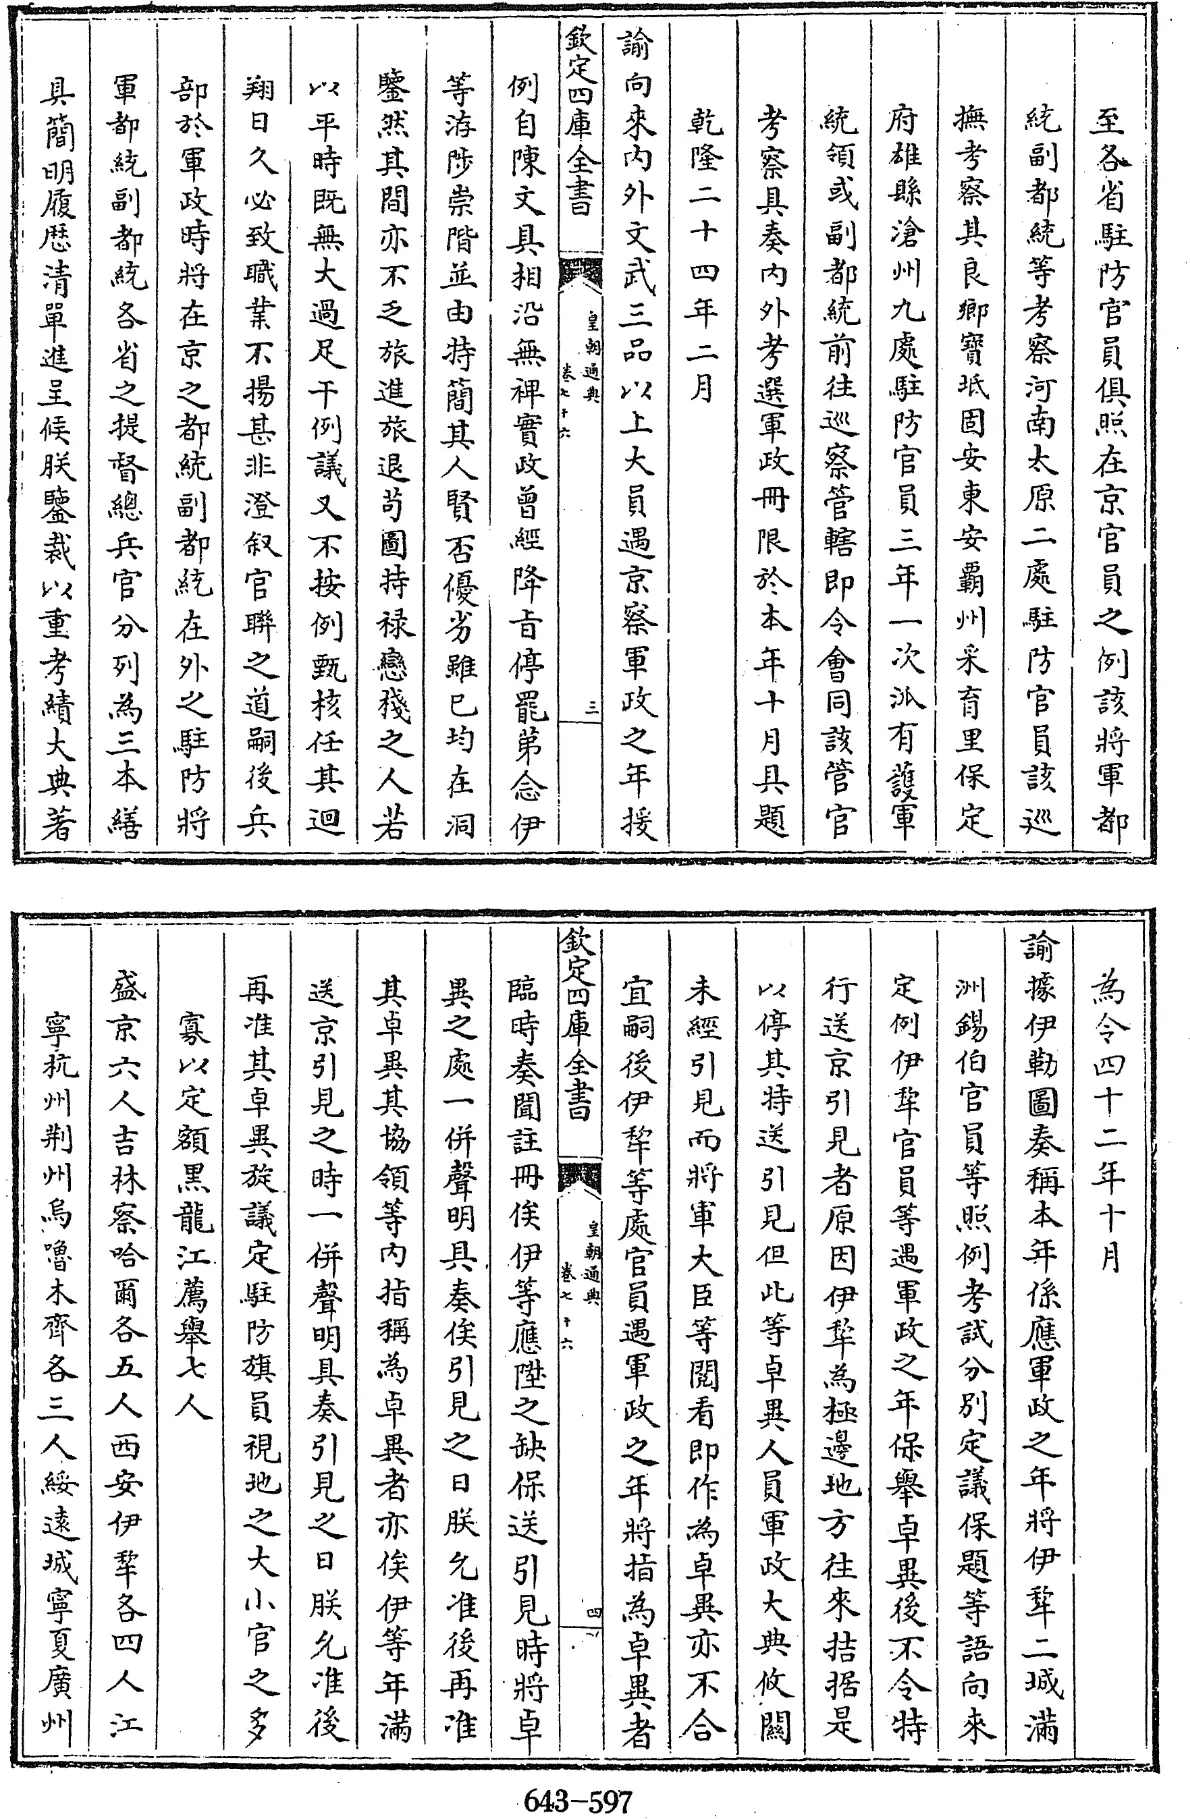 至各省駐防官員俱照在京官員之例該將軍都
統副都統等考察河南太原二處駐防官員該巡
撫考察其良鄉寶坻固安東安霸州采育里保定
府雄縣滄州九處駐防官員三年一次派有護軍
統領或副都統前往巡察管轄即令會同該管官
考察具奏內外考選軍政冊限於本年十月具題
乾隆二十四年二月
諭向來內外文武三品以上大員遇京察軍政之年援
欽定四庫全書
皇朝通典
卷七十六
三
例自陳文具相沿無裨實政曾經降旨停罷第念伊
等洊陟崇階並由特簡其人賢否優劣雖已均在洞
鑒然其間亦不乏旅進旅退苟圖持祿戀棧之人若
以平時既無大過足干例議又不按例甄核任其迴
翔日久必致職業不揚甚非澄叙官聯之道嗣後兵
部於軍政時將在京之都統副都統在外之駐防將
軍都統副都統各省之提督總兵官分列為三本繕
具簡明履歷清單進呈候朕鑒裁以重考績大典著
為令四十二年十月
諭據伊勒圖奏稱本年係應軍政之年將伊犂二城滿
洲錫伯官員等照例考試分別定議保題等語向來
定例伊犂官員等遇軍政之年保舉卓異後不令特
行送京引見者原因伊犂為極邊地方往來拮据是
以停其特送引見但此等卓異人員軍政大典攸關
未經引見而將軍大臣等閱看即作為卓異亦不合
宜嗣後伊犂等處官員遇軍政之年將指為卓異者
欽定四庫全書
皇朝通典
卷七十六
四
臨時奏聞註冊俟伊等應陞之缺保送引見時將卓
異之處一併聲明具奏俟引見之日朕允准後再准
其卓異其協領等內指稱為卓異者亦俟伊等年滿
送京引見之時一併聲明具奏引見之日朕允准後
再准其卓異旋議定駐防旗員視地之大小官之多
寡以定額黑龍江薦舉七人
盛京六人吉林察哈爾各五人西安伊犂各四人江
寧杭州荆州烏嚕木齊各三人綏遠城寧夏廣州
643-597